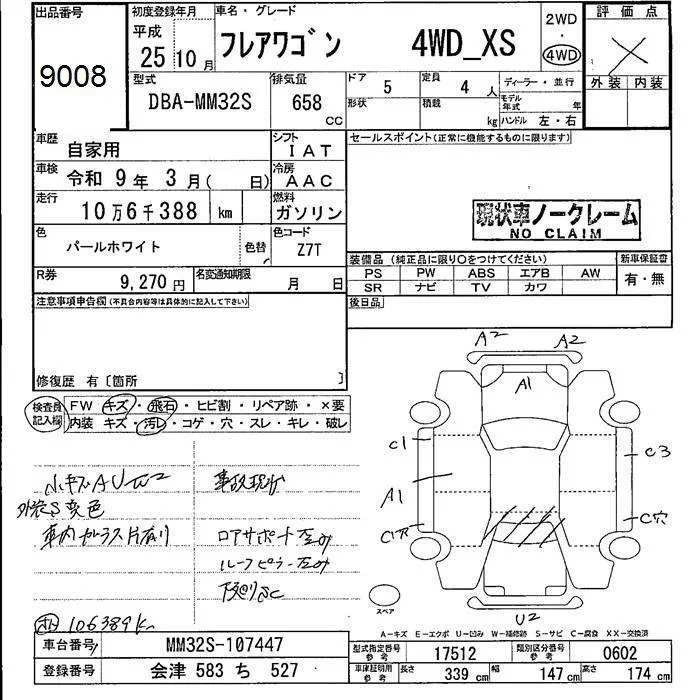 出品番号
9008
初度登録年月
平成
25 10月
車名・グレード
フレアワゴン 4WD_XS
2WD
・
4WD
評価点
外装 内装
型式
DBA-MM32S
排気量
658 CC
ドア 5
形状
定員 4 人
積載 kg
ディーラー・並行
モデル年式 年
ハンドル 左・右
車歴 自家用
シフト IAT
車検 令和 9年 3月 ( 日)
冷房 AAC
走行 10万6千388 km
燃料 ガソリン
色 パールホワイト 色替
色コード Z7T
R券 9,270円
名変通知期限 月 日
セールスポイント(正常に機能するものに限ります)
現状車ノークレーム
NO CLAIM
装備品(純正品に限り○をつけてください)
新車保証書
PS PW ABS エアB AW
SR ナビ TV カワ
有・無
後日品
注意事項申告欄(不具合内容等は具体的に記入して下さい)
修復歴 有〔箇所 〕
検査員記入欄
FW キズ・飛石・ヒビ割・リペア跡・×要
内装 キズ・汚レ・コゲ・穴・スレ・キレ・破レ
小キズAUW2
外装S変色
車内ガラス片有り
事故現状
ロアサポート歪み
ルーフピラー歪み
下廻りSC
106389k
A2 A2
A1
C1
C3
A1
C穴
C穴
U2
スペア
A-キズ E-エクボ U-凹み W-補修跡 S-サビ C-腐食 XX-交換済
車台番号 MM32S-107447
登録番号 会津 583 ち 527
型式指定番号 参考 17512
類別区分番号 参考 0602
車庫証明用 参考 長さ 339 cm 幅 147 cm 高さ 174 cm